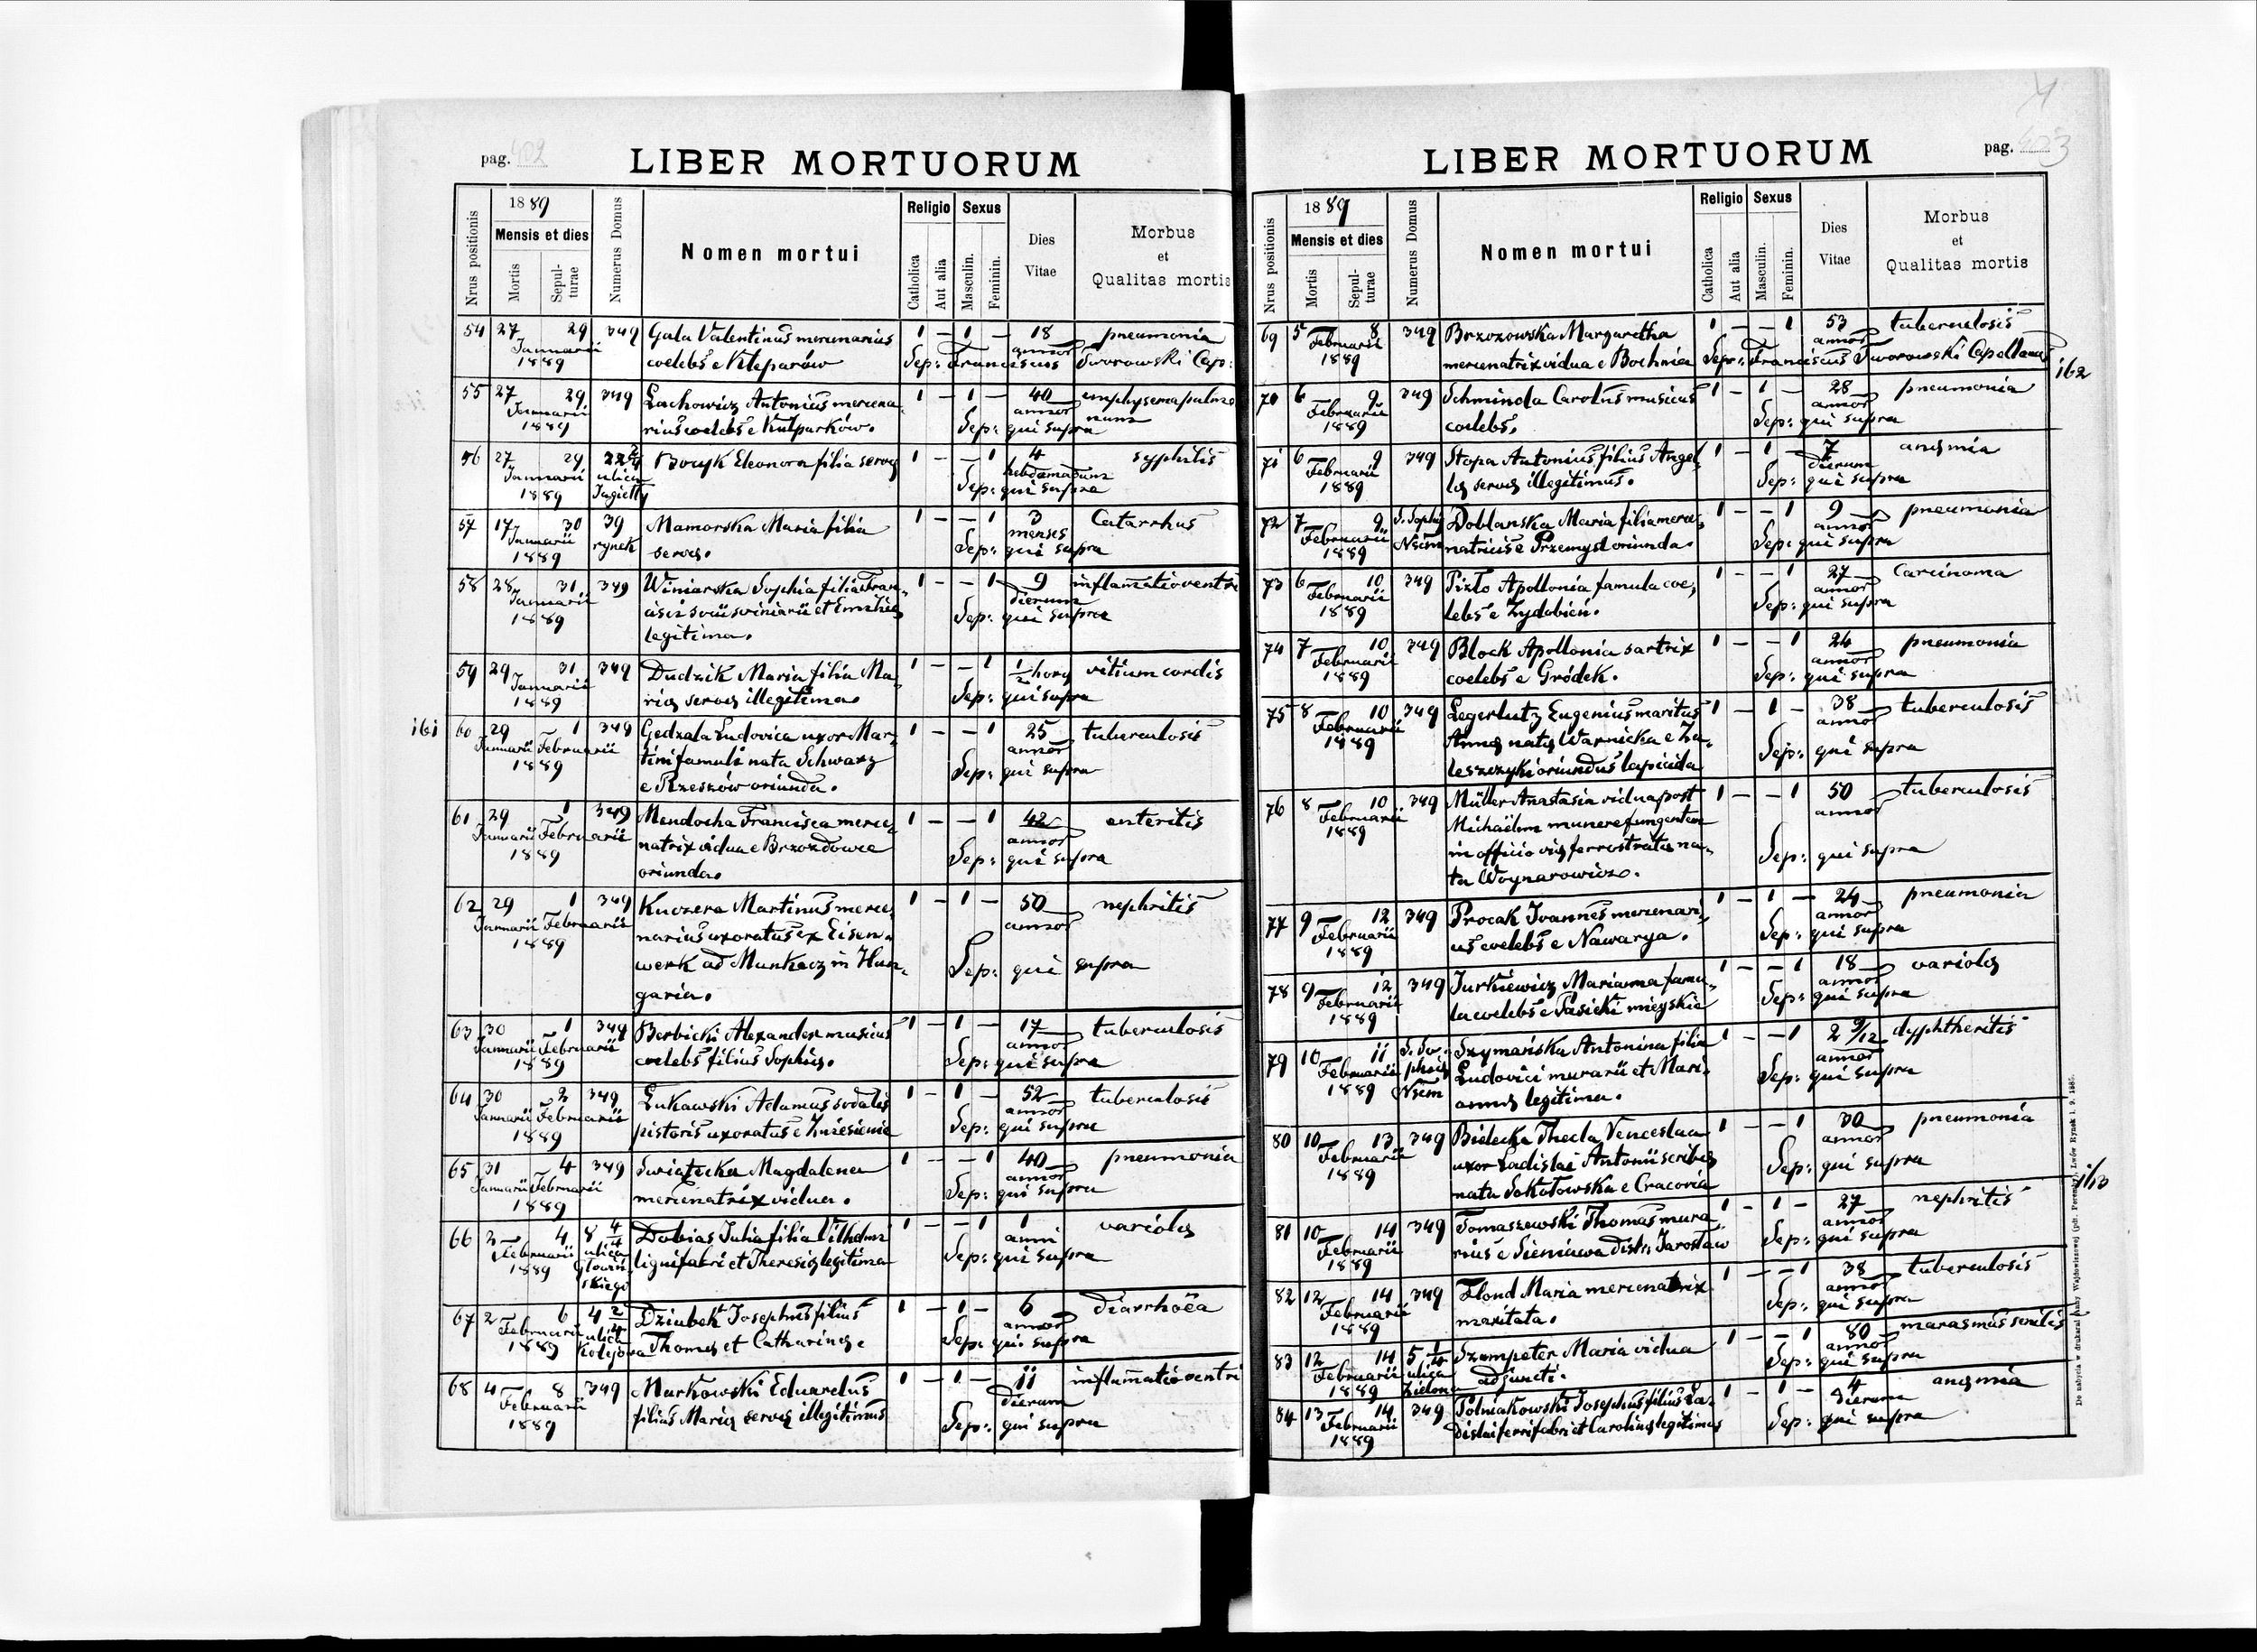 pag. 402
LIBER MORTUORUM
Nrus positionis
1889
Mensis et dies
Mortis
Sepulturae
Numerus Domus
Nomen mortui
Religio
Catholica
Aut alia
Sexus
Masculin.
Feminin.
Dies
Vitae
Morbus
et
Qualitas mortis
54 27 29 349 Gala Valentinus mercenarius 1 — 1 — 18 pneumonia
Januarii annor
1889 coelebs e Kleparów Sep: Franciscus Tworowski Cap:
55 27 29 349 Lachowicz Antonius mercena 1 — 1 — 40 emphysema pulmo
Januarii annor num
1889 rius coelebs e Kulparków. Sep: qui supra
56 27 29 22 2/4 Bocyk Eleonora filia servae 1 — — 1 4 syphilis
Januarii ulica hebdomadum
1889 Jagielly Sep: qui supra
57 17 30 39 Mamorska Maria filia 1 — — 1 3 Catarrhus
Januarii rynek servae. menses
1889 Sep: qui supra
58 28 31 349 Winiarska Sophia filia Fran 1 — — 1 9 inflamatio ventri
Januarii cisci socii viniarii et Emiliae dierum
1889 legitima. Sep: qui supra
59 29 31 349 Dudzik Maria filia Ma 1 — — 1 1/2 hora vitium cordis
Januarii
1889 riae servae illegitima. Sep: qui supra
161
60 29 1 349 Gedzala Ludovica uxor Mar 1 — — 1 25 tuberculosis
Januarii Februarii tini famuli nata Schwarz annor
1889 e Rzeszów oriunda. Sep: qui supra
61 29 1 349 Mendocha Francisca merce 1 — — 1 42 enteritis
Januarii Februarii natrix vidua e Brzozdowce annor
1889 oriunda. Sep: qui supra
62 29 1 349 Kuczera Martinus merce 1 — 1 — 50 nephritis
Januarii Februarii narius uxoratus ex Eisen annor
1889 werk ad Munkacz in Hun
garia. Sep: qui supra
63 30 1 349 Berbicki Alexander musicus 1 — 1 — 17 tuberculosis
Januarii Februarii annor
1889 coelebs filius Sophiae. Sep: qui supra
64 30 2 349 Łukawski Adamus sodalis 1 — 1 — 52 tuberculosis
Januarii Februarii annor
1889 pistoris uxoratus e Zniesienie Sep: qui supra
65 31 4 349 Swiątecka Magdalena 1 — — 1 40 pneumonia
Januarii Februarii annor
1889 mercenatrix vidua. Sep: qui supra
66 2 4 8 4/4 Dobias Julia filia Vilhelmi 1 — — 1 1 variolae
Februarii ulica anni
1889 Głowińskiego lignifabri et Theresiae legitima Sep: qui supra
67 2 6 4 2/4 Dziubek Josephus filius 1 — 1 — 6 diarrhoëa
Februarii ulica annor
1889 Kolejowa Thomae et Catharinae. Sep: qui supra
68 4 8 349 Markowski Eduardus 1 — 1 — 11 inflamatio ventri
Februarii dierum
1889 filius Mariae servae illegitimus Sep: qui supra
pag. 403
LIBER MORTUORUM
Nrus positionis
1889
Mensis et dies
Mortis
Sepulturae
Numerus Domus
Nomen mortui
Religio
Catholica
Aut alia
Sexus
Masculin.
Feminin.
Dies
Vitae
Morbus
et
Qualitas mortis
69 5 8 349 Brzozowska Margaretha 1 — — 1 53 tuberculosis
Februarii annor
1889 mercenatrix vidua e Bochnia Sep: Franciscus Tworowski Capellanus
162
70 6 9 349 Schminda Carolus musicus 1 — 1 — 28 pneumonia
Februarii annor
1889 coelebs. Sep: qui supra
71 6 9 349 Stopa Antonius filius Angel 1 — 1 — 7 anaemia
Februarii dierum
1889 lae servae illegitimus. Sep: qui supra
72 7 9 S. Sophiae Doblanska Maria filia merce 1 — — 1 9 pneumonia
Februarii annor
1889 Nsim natricis e Przemysl oriunda. Sep: qui supra
73 6 10 349 Pizło Apollonia famula coe 1 — — 1 27 Carcinoma
Februarii annor
1889 lebs e Zydobicń. Sep: qui supra
74 7 10 349 Block Apollonia sartrix 1 — — 1 24 pneumonia
Februarii annor
1889 coelebs e Gródek. Sep: qui supra
75 8 10 349 Legerlutz Eugenius maritus 1 — 1 — 38 tuberculosis
Februarii Annae natae Warnicka e Za annor
1889 leszczyki oriundus lapicida Sep: qui supra
76 8 10 349 Müller Anastasia vidua post 1 — — 1 50 tuberculosis
Februarii Michaëlem munere fungentem annor
1889 in officio viae ferrostratae na
ta Woynarowicz. Sep: qui supra
77 9 12 349 Procak Joannes mercenari 1 — 1 — 24 pneumonia
Februarii annor
1889 us coelebs e Nawarya. Sep: qui supra
78 9 12 349 Jurkiewicz Marianna famu 1 — — 1 18 variolae
Februarii annor
1889 la coelebs e Pasieki mieyskie Sep: qui supra
79 10 11 S. Sophiae Szymańska Antonina filia 1 — — 1 2 9/12 dyphtheritis
Februarii Ludovici murarii et Mari annor
1889 Nsim annae legitima. Sep: qui supra
80 10 13 349 Bielecka Thecla Venceslaa 1 — — 1 30 pneumonia
Februarii uxor Ladislai Antonii scribae annor
1889 nata Sokołowska e Cracovia Sep: qui supra
81 10 14 349 Tomaszewski Thomas mura 1 — 1 — 27 nephritis
Februarii annor
1889 rius e Sieniawa distr: Jarosław Sep: qui supra
82 12 14 349 Flond Maria mercenatrix 1 — — 1 38 tuberculosis
Februarii annor
1889 maritata. Sep: qui supra
83 12 14 5 1/4 Szempeter Maria vidua 1 — — 1 80 marasmus senilis
Februarii ulica annor
1889 Zielona adjuncti. Sep: qui supra
84 13 14 349 Polniakowski Josephus filius La 1 — 1 — 4 anaemia
Februarii dierum
1889 dislai ferrifabri et Carolinae legitimus Sep: qui supra